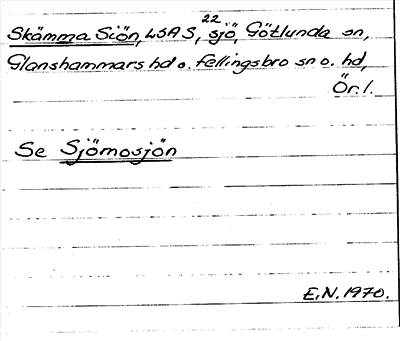 Skämma Siön, LSA S, 22 sjö, Götlunda sn,
Glanshammars hd o. Fellingsbro sn o. hd,
Ör. l.
Se Sjömosjön
E.N. 1970.